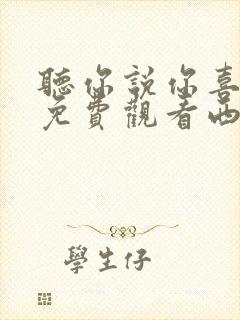 聽你說你喜
免費觀看西
學生仔